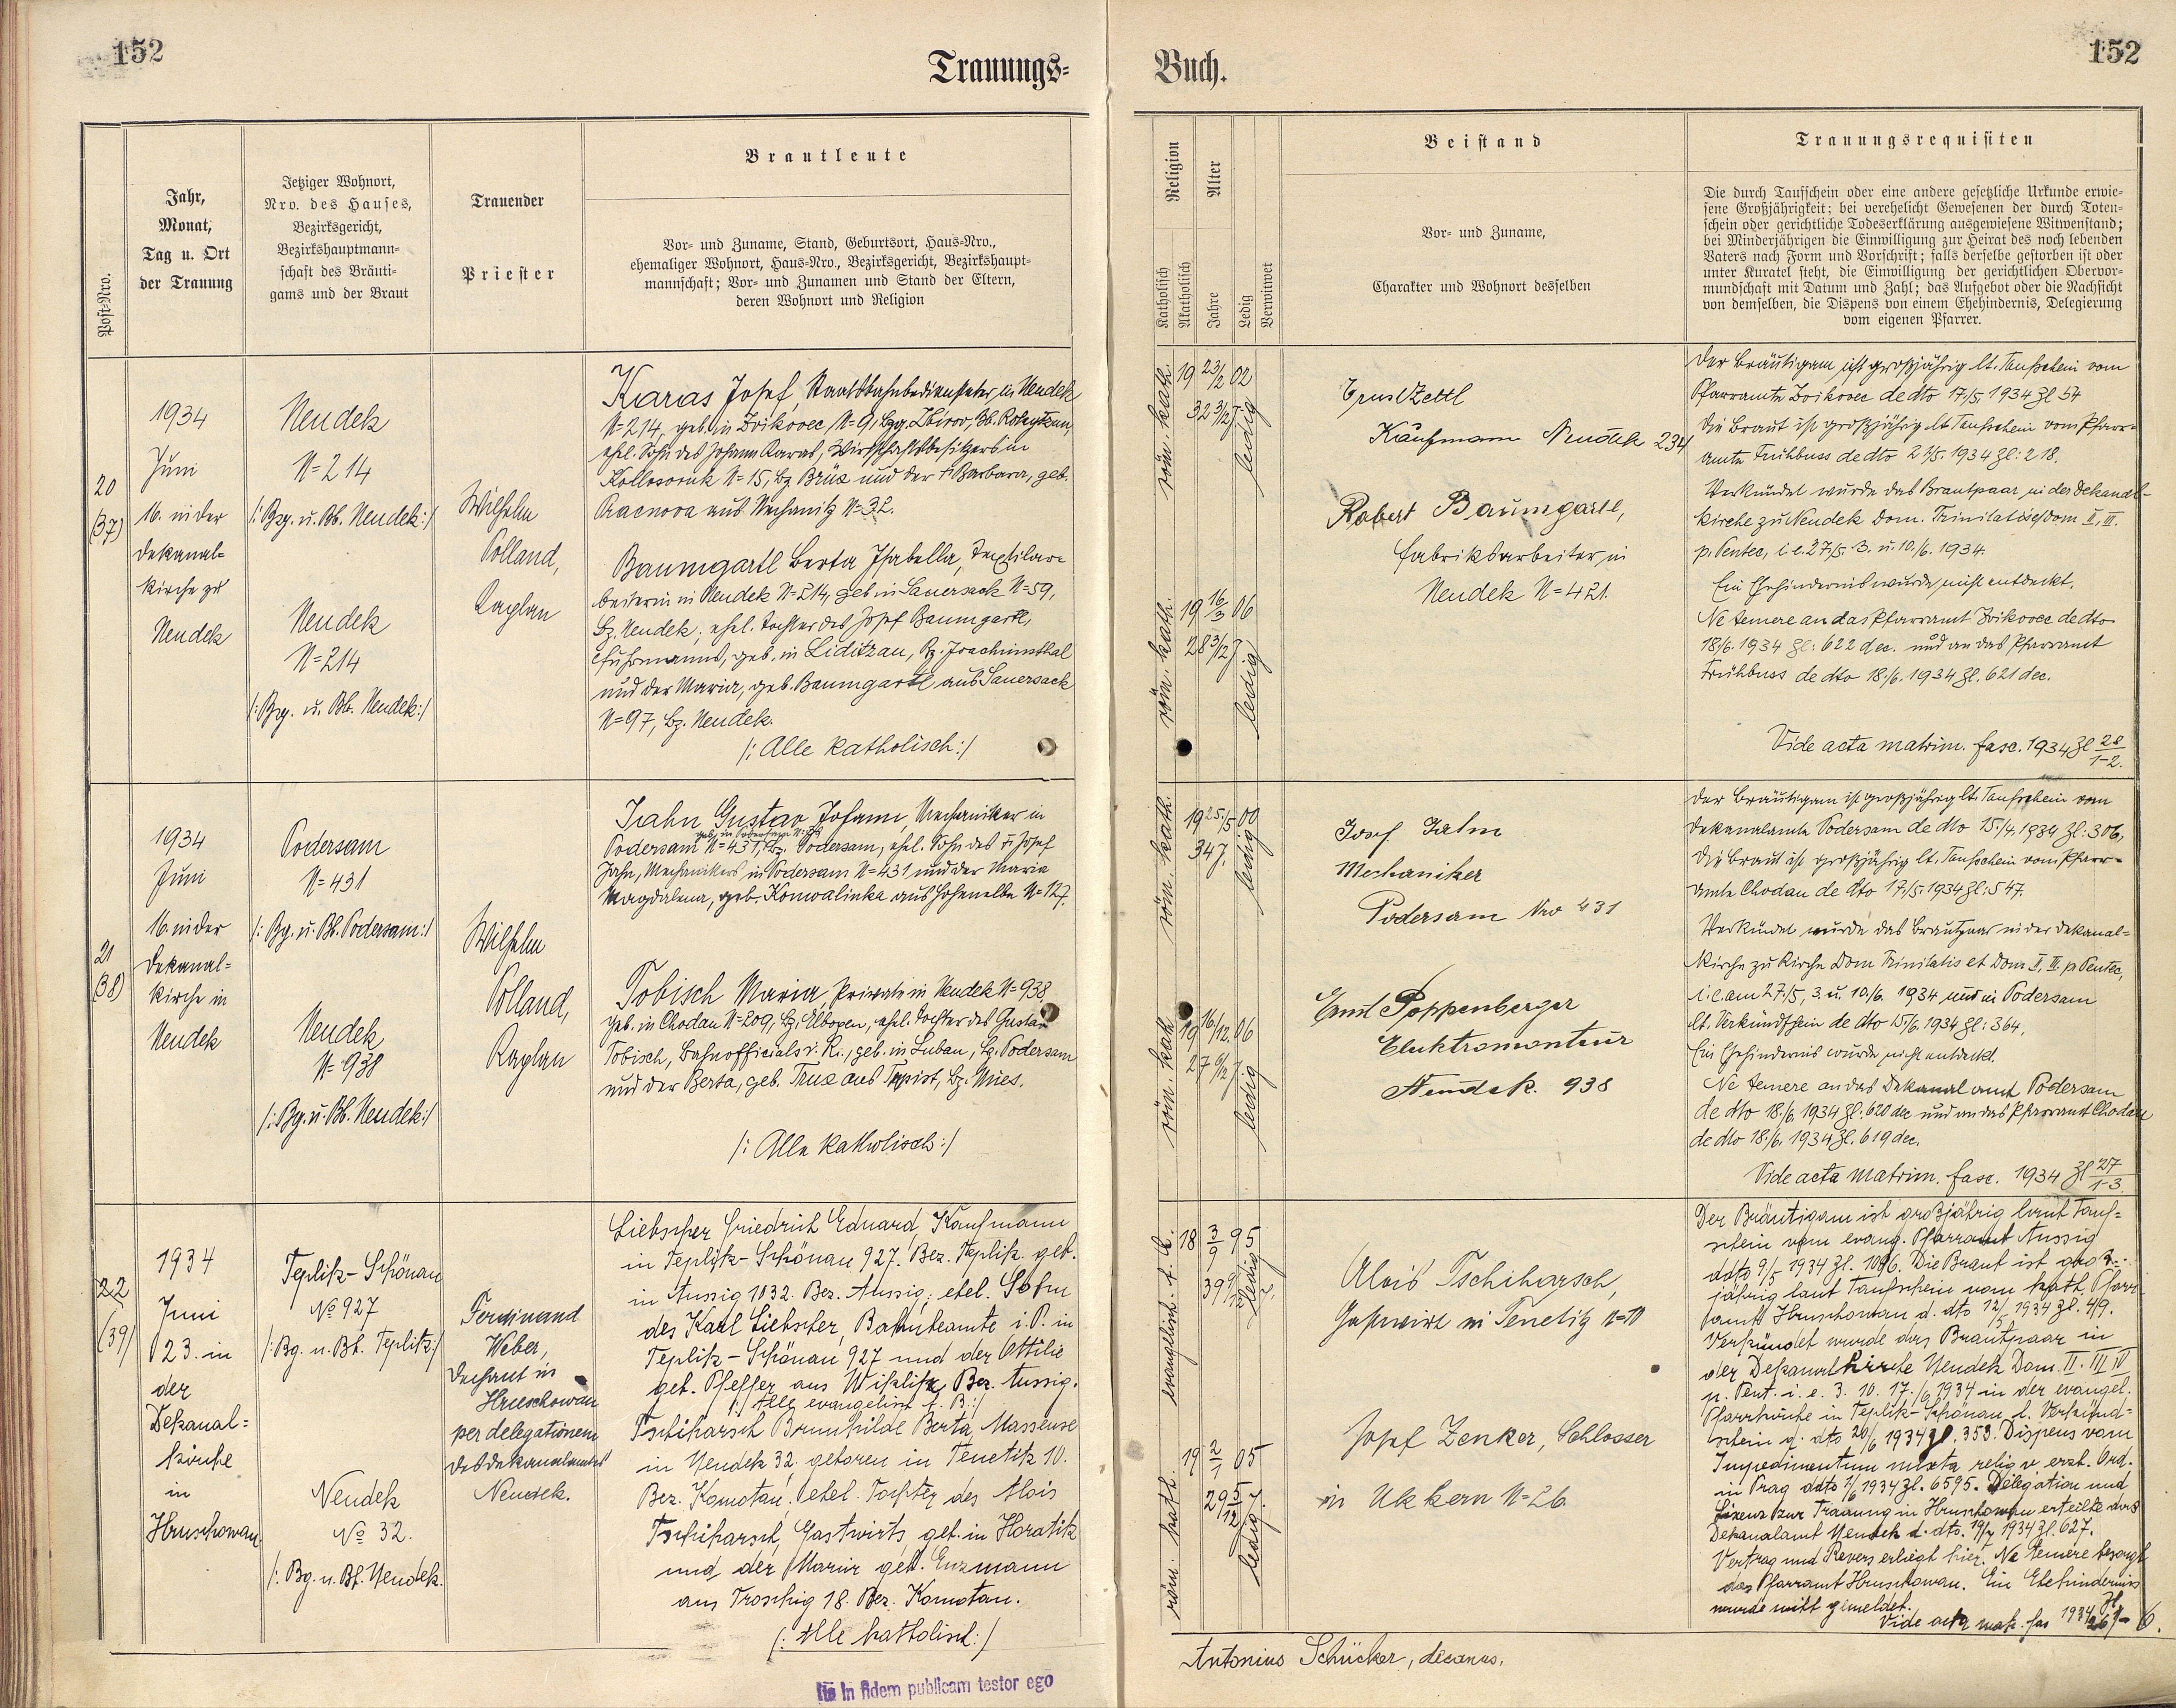 152
Trauungs-
Post-Nro.
Jahr,
Monat,
Tag u. Ort
der Trauung
Jetziger Wohnort,
Nro. des Hauses,
Bezirksgericht,
Bezirkshauptmann-
schaft des Bräuti-
gams und der Braut
Trauender
Priester
Brautleute
Vor- und Zuname, Stand, Geburtsort, Haus-Nro.,
ehemaliger Wohnort, Haus-Nro., Bezirksgericht, Bezirkshaupt-
mannschaft; Vor- und Zunamen und Stand der Eltern,
deren Wohnort und Religion
20
(37)
1934
Juni
16. in der
Dekanal-
kirche zu
Neudek
Neudek
N=214
/: Bzg. u. Bb. Neudek:/
Neudek
N=214
/: Bzg. u. Bb. Neudek:/
Wilhelm
Polland,
Kaplan
Karas Josef, Staatsbahnbediensteter, in Neudek
N=214, geb. in Zvikovec N=9, Bzg. Zbirov, Bb. Rokytzan,
ehel. Sohn des Johann Karas, Wirtschaftsbesitzers in
Kollosoruk N=15, Bz. Brüx und der † Barbara, geb.
aus Nechanitz N=32.
Baumgartl Berta Isabella, Textilar-
beiterin in Neudek N=214, geb. in Sauersack N=59,
Bz. Neudek, ehel. Tochter des Josef Baumgartl,
Fuhrmanns, geb. in Liditzau, Bz. Joachimsthal
und der Maria, geb. Baumgartl aus Sauersack
N=97, Bz. Neudek.
/: Alle katholisch:/
21
(38)
1934
Juni
16. in der
Dekanal-
kirche in
Neudek
Podersam
N=431
/: Bg. u. Bb. Podersam:/
Neudek
N=938
/: Bg. u. Bb. Neudek:/
Wilhelm
Polland,
Kaplan
Jahn Gustav Johann, Mechaniker in
Podersam N=431, Bz. Podersam, ehel. Sohn des † Josef
Jahn, Mechanikers in Podersam N=431 und der Maria
Magdalena, geb. Konwalinka aus Hohenelbe N=127.
Tobisch Maria, Private in Neudek N=938,
geb. in Chodau N=209, Bz. Elbogen, ehel. Tochter des Gustav
Tobisch, Bahnofficials i. R., geb. in Luban, Bz. Podersam
und der Berta, geb. Trux aus Tepist, Bz. Mies.
/: Alle katholisch:/
22
(39)
1934
Juni
23. in
der
Dekanal-
kirche
in
Hruschowan
Teplitz-Schönau
No 927
/: Bg. u. Bh. Teplitz:/
Neudek
No 32.
/: Bg. u. Bh. Neudek.
Ferdinand
Weber,
Dechant in
Hruschowan
per delegationem
des Dekanalamtes
Neudek.
Liebscher Friedrich Eduard, Kaufmann
in Teplitz-Schönau 927. Bez. Teplitz. geb.
in Aussig 1032. Bez. Aussig; ehel. Sohn
des Karl Liebscher, Bahnbeamte i. P. in
Teplitz-Schönau 927 und der Ottilie
geb. Pfeffer aus Bez. Aussig.
/: Alle evangelisch A. B.:/
Tschiharsch Brunhilde Berta, Masseuse
in Neudek 32, geboren in Tenetitz 10.
Bez. Komotau, ehel. Tochter des Alois
Tschiharsch, Gastwirts, geb. in Horatitz
und der Marie geb. Enzmann
aus Troschig 18. Bez. Komotau.
(: Alle katholisch:/
Ita in fidem publicam testor ego
152
Buch.
Religion
Katholisch
Akatholisch
Alter
Jahre
Ledig
Verwitwet
Beistand
Vor- und Zuname,
Charakter und Wohnort desselben
Trauungsrequisiten
Die durch Taufschein oder eine andere gesetzliche Urkunde erwie-
sene Großjährigkeit; bei verehelicht Gewesenen der durch Toten-
schein oder gerichtliche Todeserklärung ausgewiesene Witwenstand;
bei Minderjährigen die Einwilligung zur Heirat des noch lebenden
Vaters nach Form und Vorschrift; falls derselbe gestorben ist oder
unter Kuratel steht, die Einwilligung der gerichtlichen Obervor-
mundschaft mit Datum und Zahl; das Aufgebot oder die Nachsicht
von demselben, die Dispens von einem Ehehindernis, Delegierung
vom eigenen Pfarrer.
röm. kath.
19 23/2 02
32 3/12 J.
ledig
röm. kath.
19 16/3 06
28 3/12 J.
ledig
Ernst Zettl
Kaufmann Neudek 234
Robert Baumgartl,
Fabriksarbeiter in
Neudek N=421.
Der Bräutigam ist großjährig lt. Taufschein vom
Pfarramte Zvikovec de dto 17./5. 1934 Zl 54
Die Braut ist großjährig lt. Taufschein vom Pfarr-
amte Frühbuss de dto 2 /5. 1934 Zl: 218.
Verkündet wurde das Brautpaar in der Dekanal-
kirche zu Neudek Dom. Trinitatis et Dom II, III.
p. Pentec, i. e. 27/5. 3. u. 10./6. 1934.
Ein Ehehindernis wurde nicht entdeckt.
Ne temere an das Pfarramt Zvikovec de dto
18./6. 1934 Zl: 622 dec. und an das Pfarramt
Frühbuss de dto 18./6. 1934 Zl. 621 dec.
Vide acta matrim. fasc. 1934 Zl 28/1-2.
röm. kath.
19 25./5 00
34 J.
ledig
röm. kath.
19 16/12. 06
27 6/12 J.
ledig
Josef Jahn
Mechaniker
Podersam Nro 431
Ernst Poppenberger
Elektromonteur
Neudek. 938
Der Bräutigam ist großjährig lt. Taufschein vom
Dekanalamte Podersam de dto 15./4. 1934 Zl: 306,
die Braut ist großjährig lt. Taufschein vom Pfarr-
amte Chodau de dto 17./5. 1934 Zl: 547.
Verkündet wurde das Brautpaar in der Dekanal-
kirche zu Kirche Dom Trinitatis et Dom II, III. p Pentec,
i. e. am 27./5, 3. u. 10./6. 1934 und in Podersam
lt. Verkündschein de dto 15/6. 1934 Zl: 364.
Ein Ehehindernis wurde nicht entdeckt.
Ne temere an das Dekanalamt Podersam
de dto 18./6. 1934 Zl: 620 dec und an das Pfarramt Chodau
de dto 18./6. 1934 Zl. 619 dec.
Vide acta matrim. fasc. 1934 Zl 27/1-3.
evangelisch. A. B.
18 3/9 95
39 9/12 J.
ledig
röm. kath.
19 2/1 05
29 5/12 J.
ledig
Alois Tschiharsch,
Gastwirt in Tenetitz N=10
Josef Zenker, Schlosser
in Ukkern N=26
Der Bräutigam ist großjährig laut Tauf-
schein vom evang. Pfarramt Aussig
ddto 9/5 1934 Zl. Die Braut ist groß-
jährig laut Taufschein vom kath. Pfarr-
amt Hruschowan d. dto 12/5 1934 Zl. 49.
Verkündet wurde das Brautpaar in
der Dekanalkirche Neudek Dom. II. III IV
p. Pent. i. e. 3. 10. 17./6 1934 in der evangel.
Pfarrkirche in Teplitz-Schönau l. Verkünd-
schein d. dto 20/6 1934 Zl. 353. Dispens vom
Impedimentum mixta relig v. erzb. Ord.
in Prag ddto 1934 Zl. 6595. Delegation und
Lizenz zur Trauung in Hruschowan erteilte das
Dekanalamt Neudek d. dto. 1934 Zl. 627.
Vertrag und Revers erliegt hier. Ne temere besorgt
das Pfarramt Hruschowan. Ein Ehehindernis
wurde nicht gemeldet.
Vide acta matr. fas 1934 Zl 26/1-6.
Antonius Schücker, decanus.